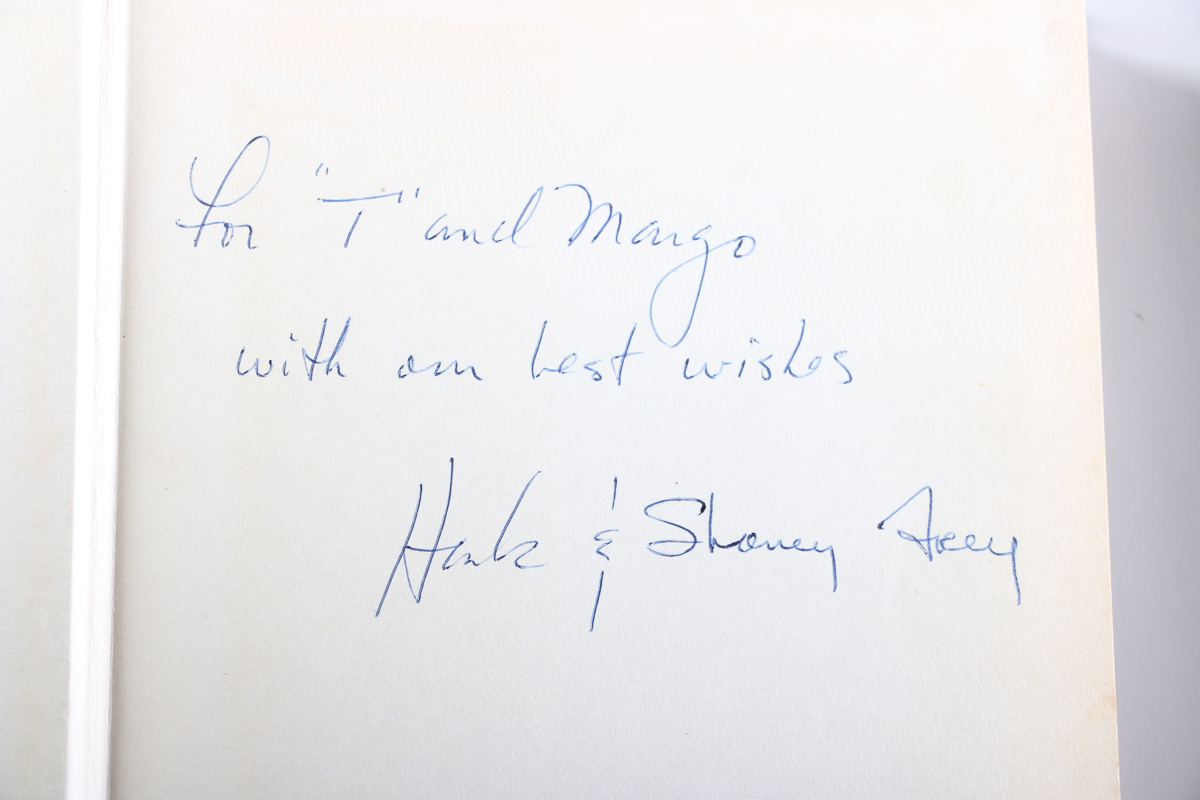 For "T" and Margo
with our best wishes
Hank & Shaney Frey